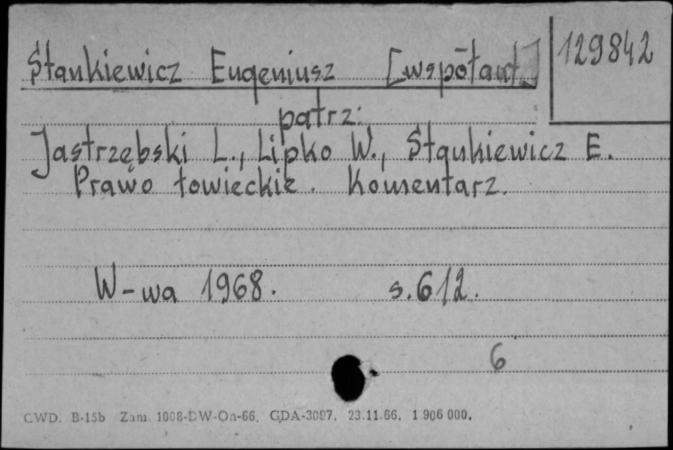 Stankiewicz Eugeniusz [współaut.]
129842
patrz:
Jastrzębski L., Lipko W., Stankiewicz E.
Prawo łowieckie. Komentarz.
W-wa 1968. s. 612.
6
CWD. B-15b Zam. 1008-DW-Oa-66. GDA-3097. 23.11.66. 1 906 000.